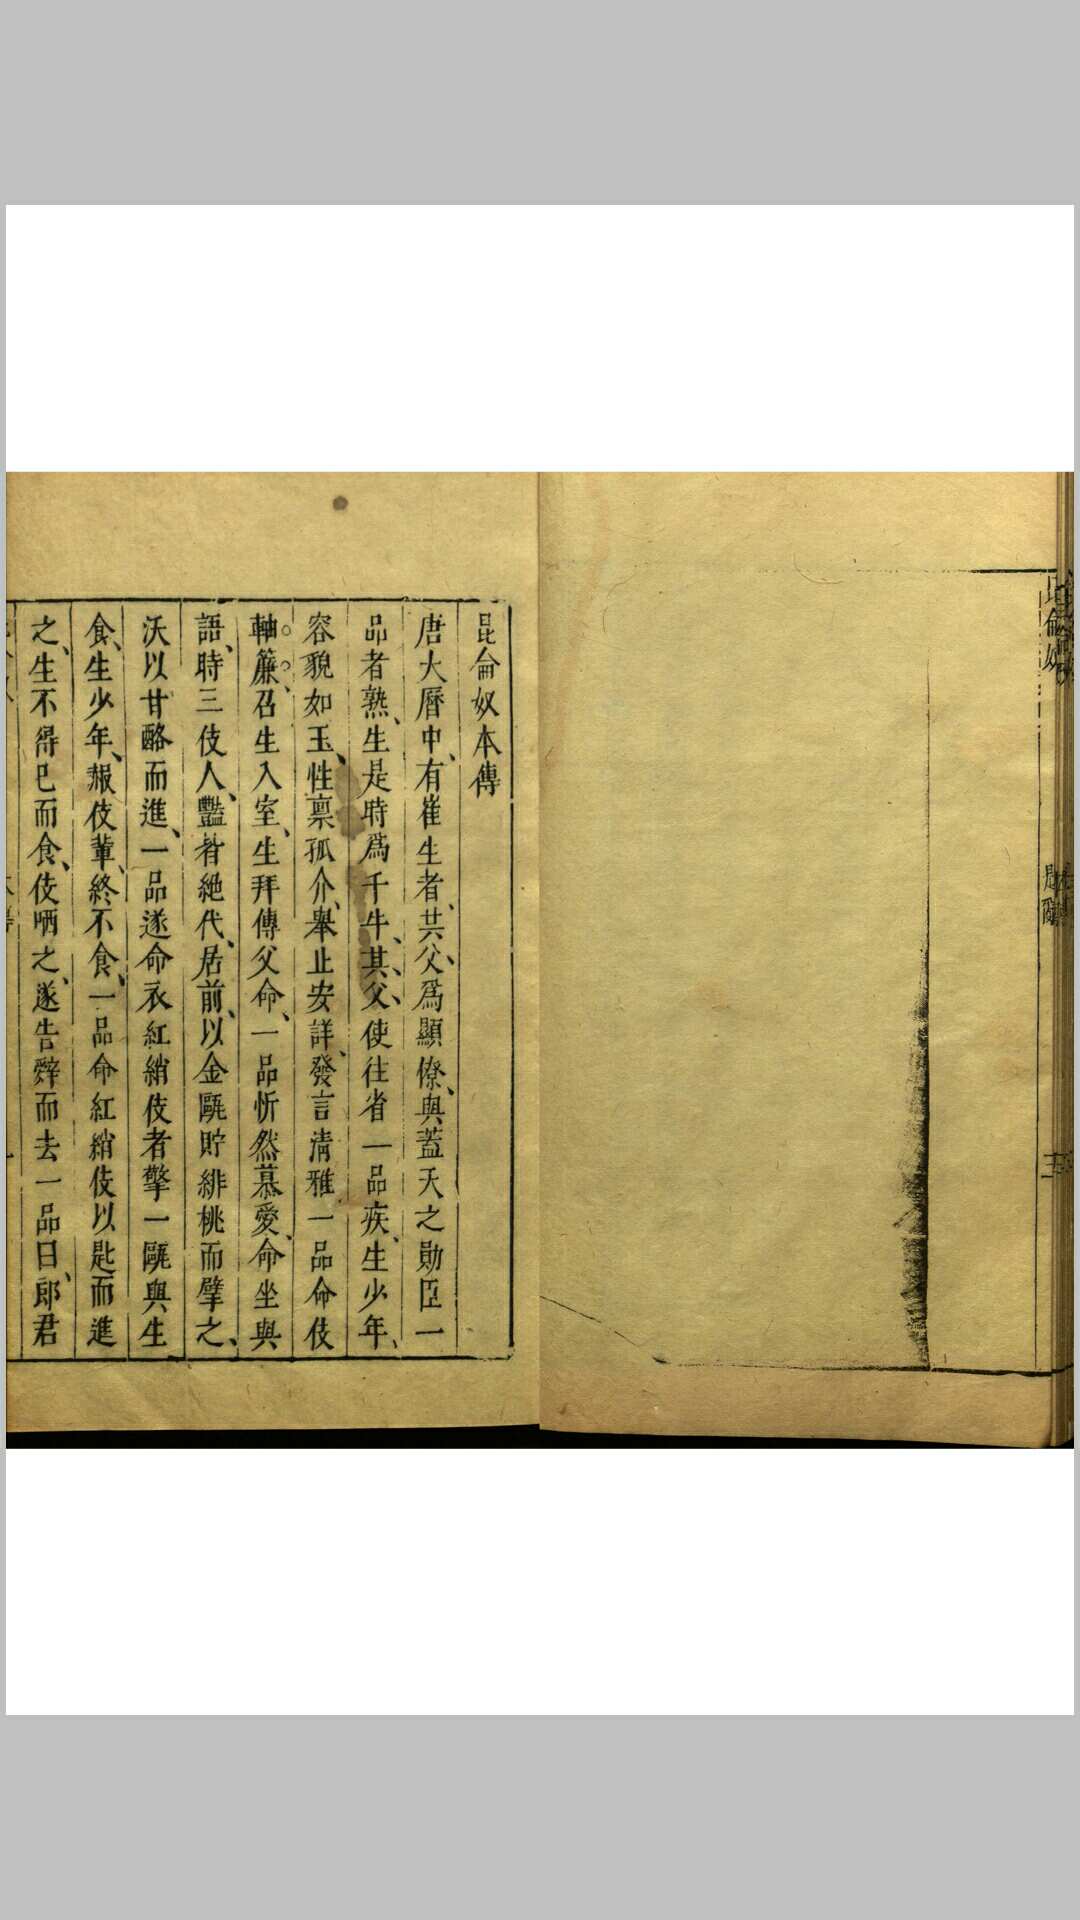 昆侖奴
題辭
三
昆侖奴本傳
唐大曆中、有崔生者、其父、爲顯僚、與蓋天之勛臣一
品者熟、生是時爲千牛、其、父、使往省一品疾、生少年、
容貌如玉、性禀孤介、舉止安詳、發言清雅一品命伎
軸簾、召生入室、生拜傳父命、一品忻然慕愛、命坐與
語、時三伎人、豔皆絶代、居前、以金甌貯緋桃而擘之、
沃以甘酪而進、一品遂命衣紅綃伎者擎一甌與生
食、生少年、赧伎輩、終不食、一品命紅綃伎以匙而進
之、生不得已而食、伎哂之、遂告辭而去一品曰、郎君